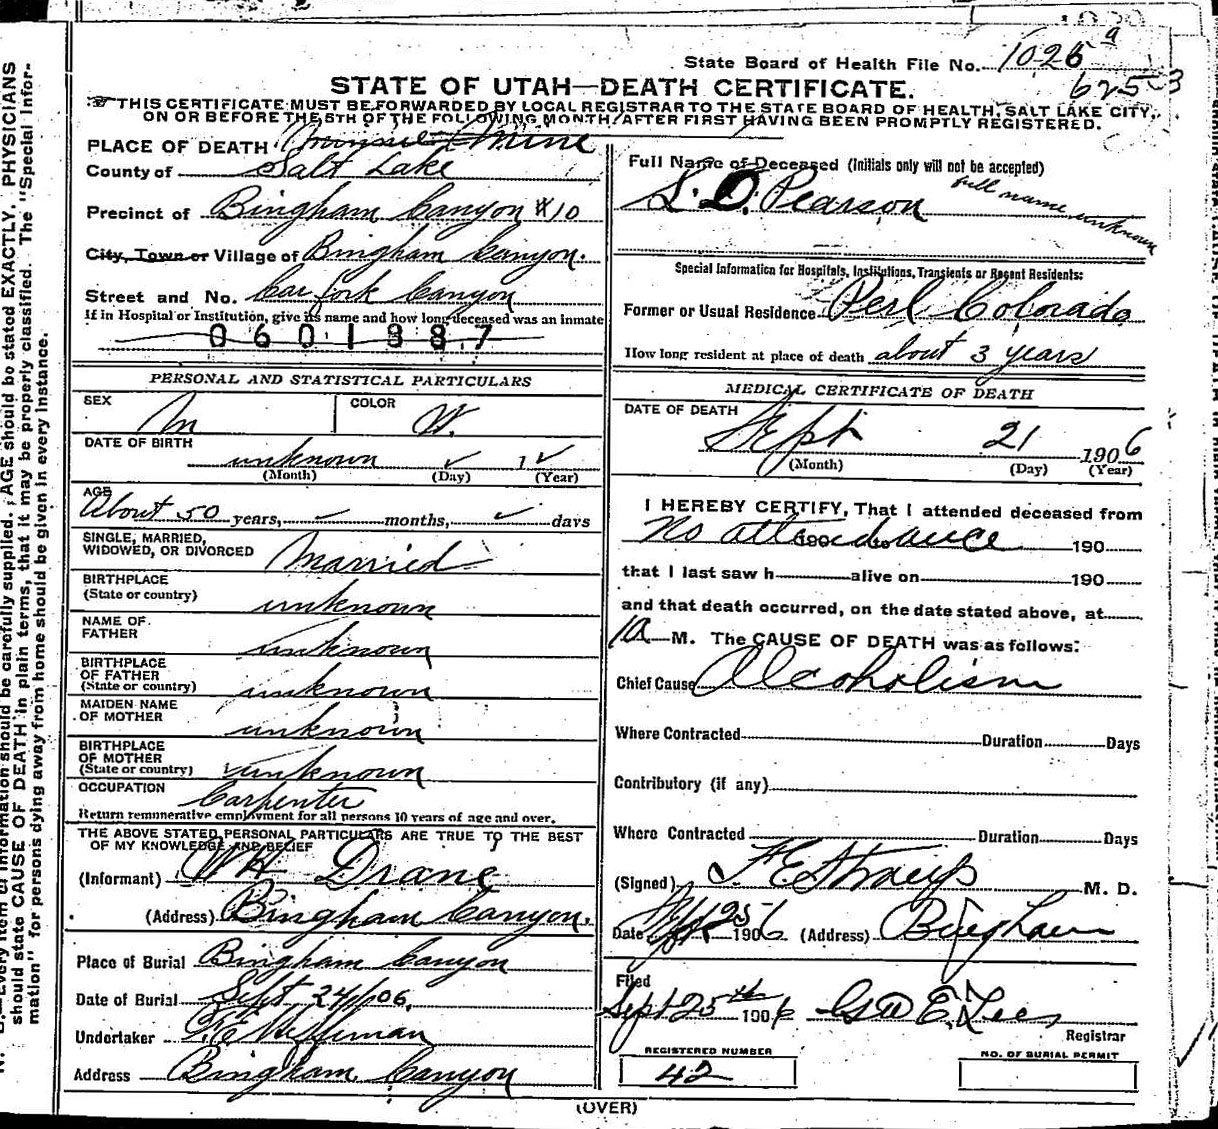 State Board of Health File No. 1026 a
6253
STATE OF UTAH—DEATH CERTIFICATE.
THIS CERTIFICATE MUST BE FORWARDED BY LOCAL REGISTRAR TO THE STATE BOARD OF HEALTH, SALT LAKE CITY,
ON OR BEFORE THE 5TH OF THE FOLLOWING MONTH, AFTER FIRST HAVING BEEN PROMPTLY REGISTERED.
PLACE OF DEATH Minnie Mine
County of Salt Lake
Precinct of Bingham Canyon #10
City, Town or Village of Bingham Canyon.
Street and No. Carr fork Canyon
If in Hospital or Institution, give its name and how long deceased was an inmate
0601887
PERSONAL AND STATISTICAL PARTICULARS
SEX M COLOR W.
DATE OF BIRTH
unknown ✓ 1 ✓
(Month) (Day) (Year)
AGE
About 50 years, ✓ months, ✓ days
SINGLE, MARRIED,
WIDOWED, OR DIVORCED Married
BIRTHPLACE
(State or country) unknown
NAME OF
FATHER unknown
BIRTHPLACE
OF FATHER
(State or country) unknown
MAIDEN NAME
OF MOTHER unknown
BIRTHPLACE
OF MOTHER
(State or country) unknown
OCCUPATION Carpenter
Return remunerative employment for all persons 10 years of age and over.
THE ABOVE STATED PERSONAL PARTICULARS ARE TRUE TO THE BEST
OF MY KNOWLEDGE AND BELIEF
(Informant) W H Drane
(Address) Bingham Canyon.
Place of Burial Bingham Canyon
Date of Burial Sept. 24/06.
Undertaker
Address Bingham Canyon
Full Name of Deceased (Initials only will not be accepted)
L. D. Pearson full name unknown
Special Information for Hospitals, Institutions, Transients or Recent Residents:
Former or Usual Residence Perl Colorado
How long resident at place of death about 3 years
MEDICAL CERTIFICATE OF DEATH
DATE OF DEATH
Sept 21 1906
(Month) (Day) (Year)
I HEREBY CERTIFY, That I attended deceased from
No attendance 190
that I last saw h alive on 190
and that death occurred, on the date stated above, at
1a M. The CAUSE OF DEATH was as follows:
Chief Cause Alcoholism
Where Contracted Duration Days
Contributory (if any)
Where Contracted Duration Days
(Signed) F E Straup M. D.
Date Sept 25 1906 (Address) Bingham
Filed
Sept 25th 1906 Geo E. Lees
Registrar
REGISTERED NUMBER
42
NO. OF BURIAL PERMIT
(OVER)
Every item of information should be carefully supplied. AGE should be stated EXACTLY. PHYSICIANS
should state CAUSE OF DEATH in plain terms, that it may be properly classified. The "Special Infor-
mation" for persons dying away from home should be given in every instance.